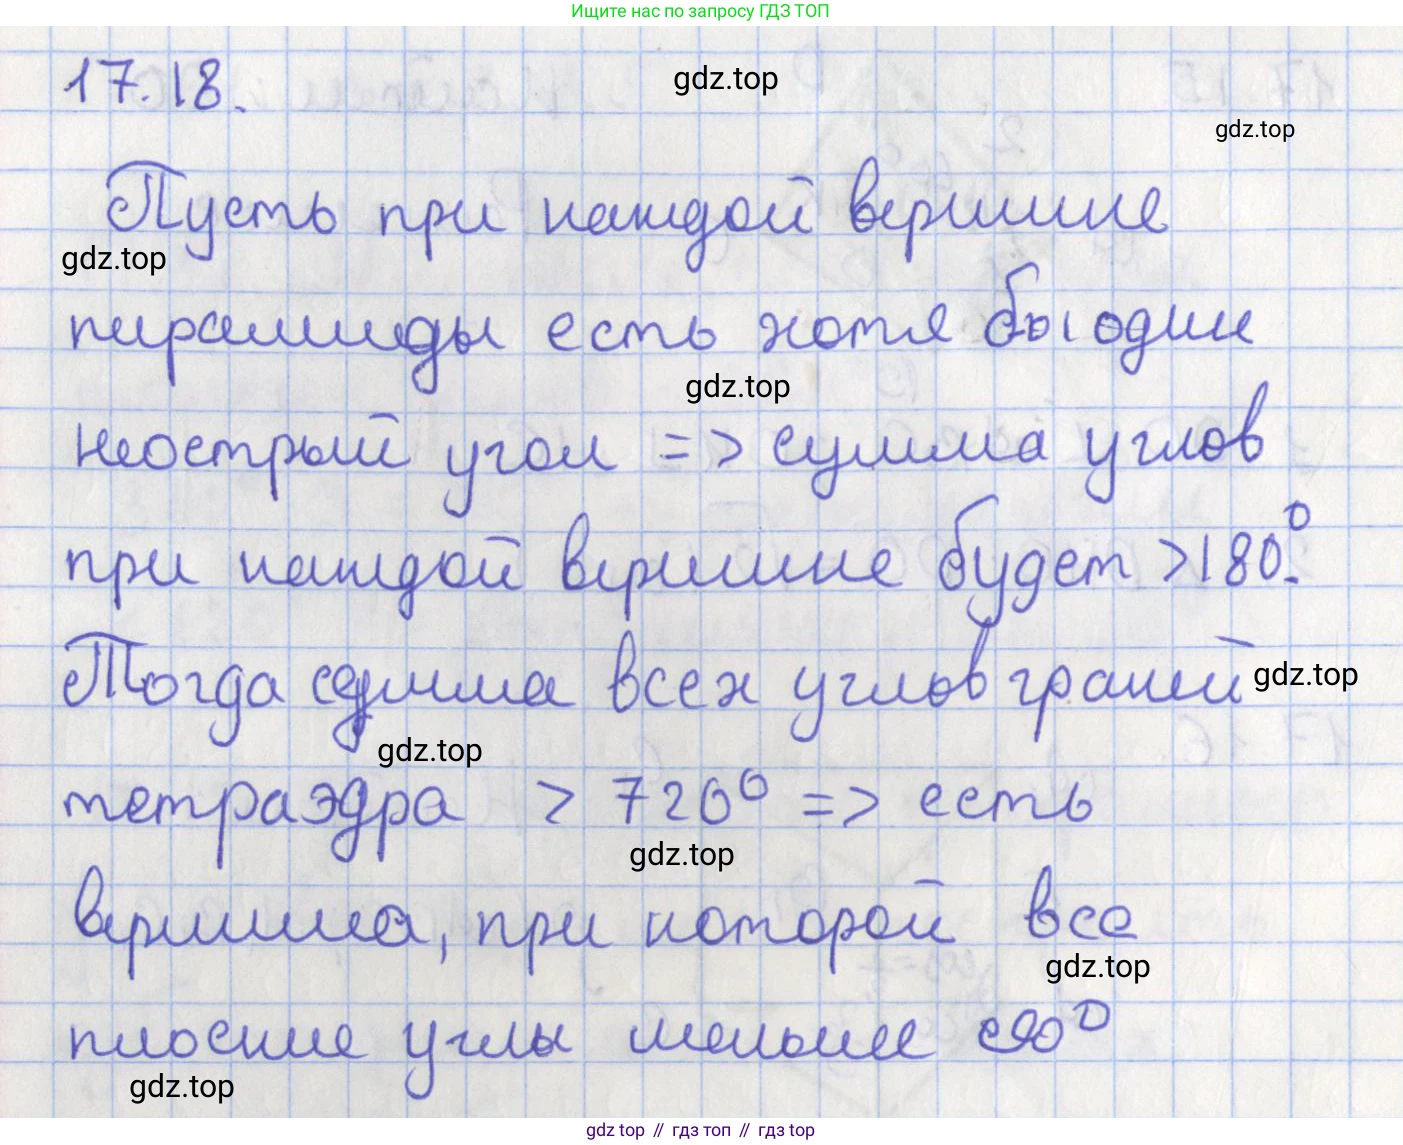 Ищите нас по запросу ГДЗ ТОП
17.18.
gdz.top
gdz.top
Пусть при каждой вершине
gdz.top
пирамиды есть хотя бы один
gdz.top
неострый угол => сумма углов
при каждой вершине будет >180°.
Тогда сумма всех углов граней
gdz.top
gdz.top
тетраэдра > 720° => есть
gdz.top
вершина, при которой все
gdz.top
плоские углы меньше 90°
gdz.top
gdz top // гдз топ // gdz top